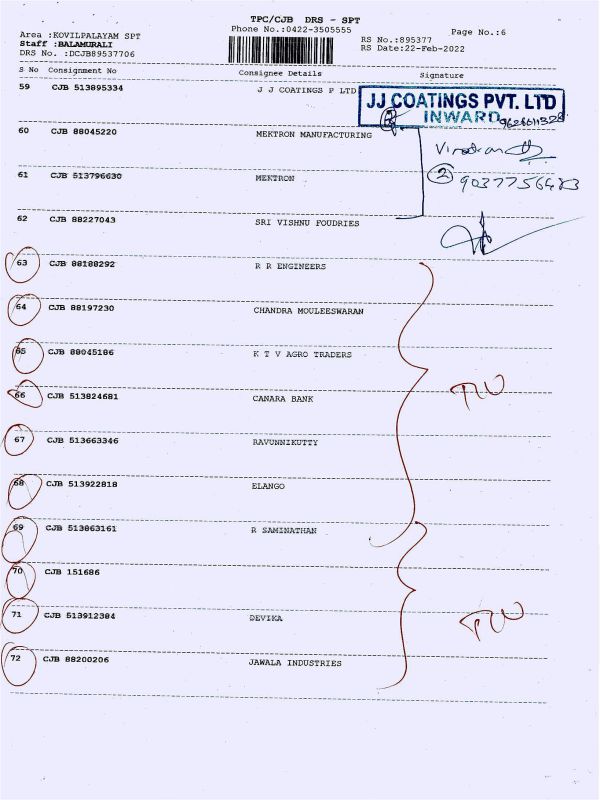 TPC/CJB DRS - SPT
Area :KOVILPALAYAM SPT Phone No.:0422-3505555 Page No.:6
Staff :BALAMURALI RS No.:895377
DRS No. :DCJB89537706 RS Date:22-Feb-2022
S No Consignment No Consignee Details Signature
59 CJB 513895334 J J COATINGS P LTD
JJ COATINGS PVT. LTD
INWARD
60 CJB 88045220 MEKTRON MANUFACTURING
61 CJB 513796630 MEKTRON
2
62 CJB 88227043 SRI VISHNU FOUDRIES
63 CJB 88188292 R R ENGINEERS
64 CJB 88197230 CHANDRA MOULEESWARAN
65 CJB 88045186 K T V AGRO TRADERS
66 CJB 513824681 CANARA BANK
67 CJB 513663346 RAVUNNIKUTTY
68 CJB 513922818 ELANGO
69 CJB 513863161 R SAMINATHAN
70 CJB 151686
71 CJB 513912384 DEVIKA
72 CJB 88200206 JAWALA INDUSTRIES